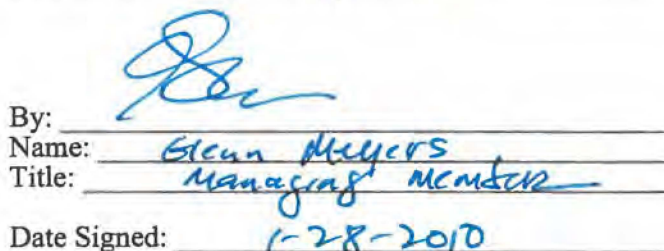 By:
Name: Glenn Meyers
Title: Managing Member
Date Signed: 1-28-2010